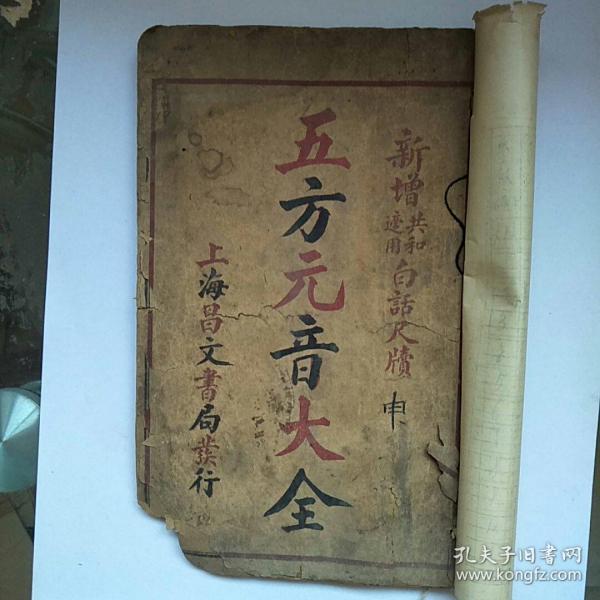 新增共和適用白話尺牘
申
五方元音大全
上海昌文書局發行
孔夫子旧书网
www.kongfz.com